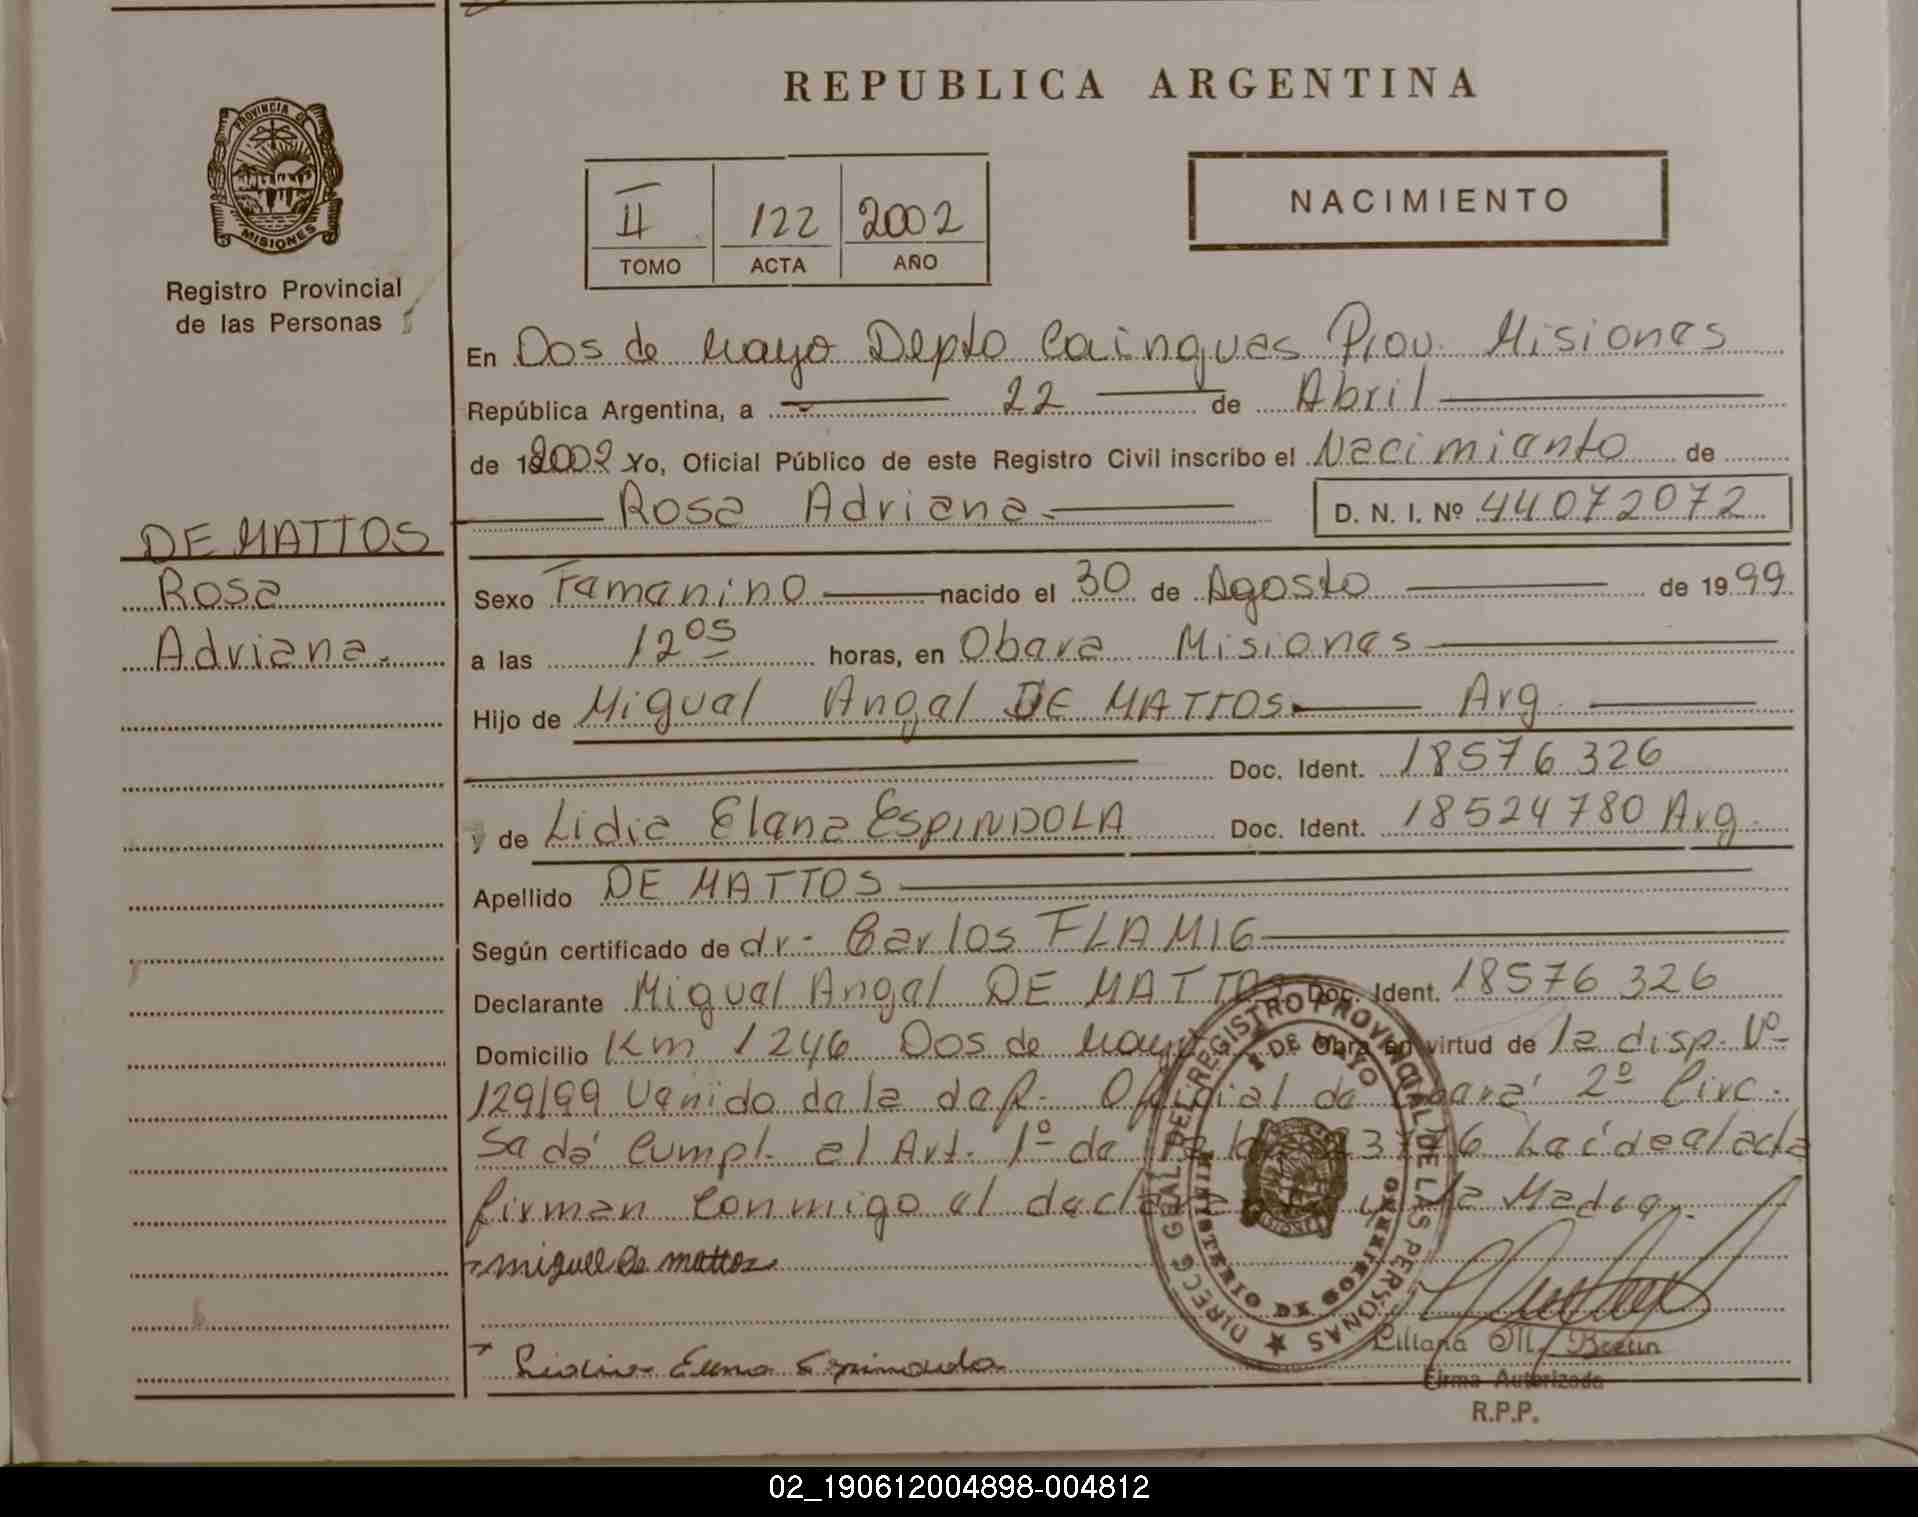 REPUBLICA ARGENTINA
PROVINCIA DE
MISIONES
Registro Provincial
de las Personas
II 122 2002
TOMO ACTA AÑO
NACIMIENTO
En Dos de Mayo Depto Cainguas Prov. Misiones
República Argentina, a 22 de Abril
de 2002 Yo, Oficial Público de este Registro Civil inscribo el Nacimiento de
Rosa Adriana D. N. I. Nº 44072072
DE MATTOS
Rosa
Adriana
Sexo Femenino nacido el 30 de Agosto de 1999
a las 12 05 horas, en Obera Misiones
Hijo de Miguel Angel DE MATTOS Arg
Doc. Ident. 18576326
y de Lidia Elena ESPINDOLA Doc. Ident. 18524780 Arg.
Apellido DE MATTOS
Según certificado de dr. Carlos FLAMIG
Declarante Miguel Angel DE MATTOS Doc. Ident. 18576326
Domicilio Km 1246 Dos de Mayo Obra en virtud de la disp. Nº
129/99 Venido de la def. Oficial de Oberá 2º Circ.
Se dá cumpl. al Art. 1º de la Leida el acta
firman conmigo el declarante y la Madre.
miguel De mattos
Lidia Elena Espindola
DIRECC GRAL DEL REGISTRO PROVINCIAL DE LAS PERSONAS
MINISTERIO DE GOBIERNO
2 DE MAYO
Liliana M.
Firma Autorizada
R.P.P.
02_190612004898-004812